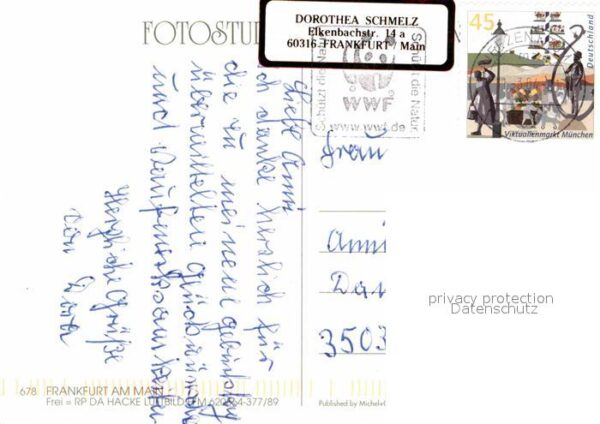 FOTOSTU
DOROTHEA SCHMELZ
Elkenbachstr. 14 a
60316 FRANKFURT/Main
45
Deutschland
Viktualienmarkt München
Schützt die Natur
WWF
www.wwf.de
Schützt die Natur
Liebe Anni
ich danke herzlich für
die zu meinem Geburtstag
übermittelten Glückwünsche
und
Herzliche Grüße
von
Frau
Anni
Da
3503
privacy protection
Datenschutz
678 FRANKFURT AM MAIN
Frei = RP DA HACKE LUFTBILD
Published by Michel